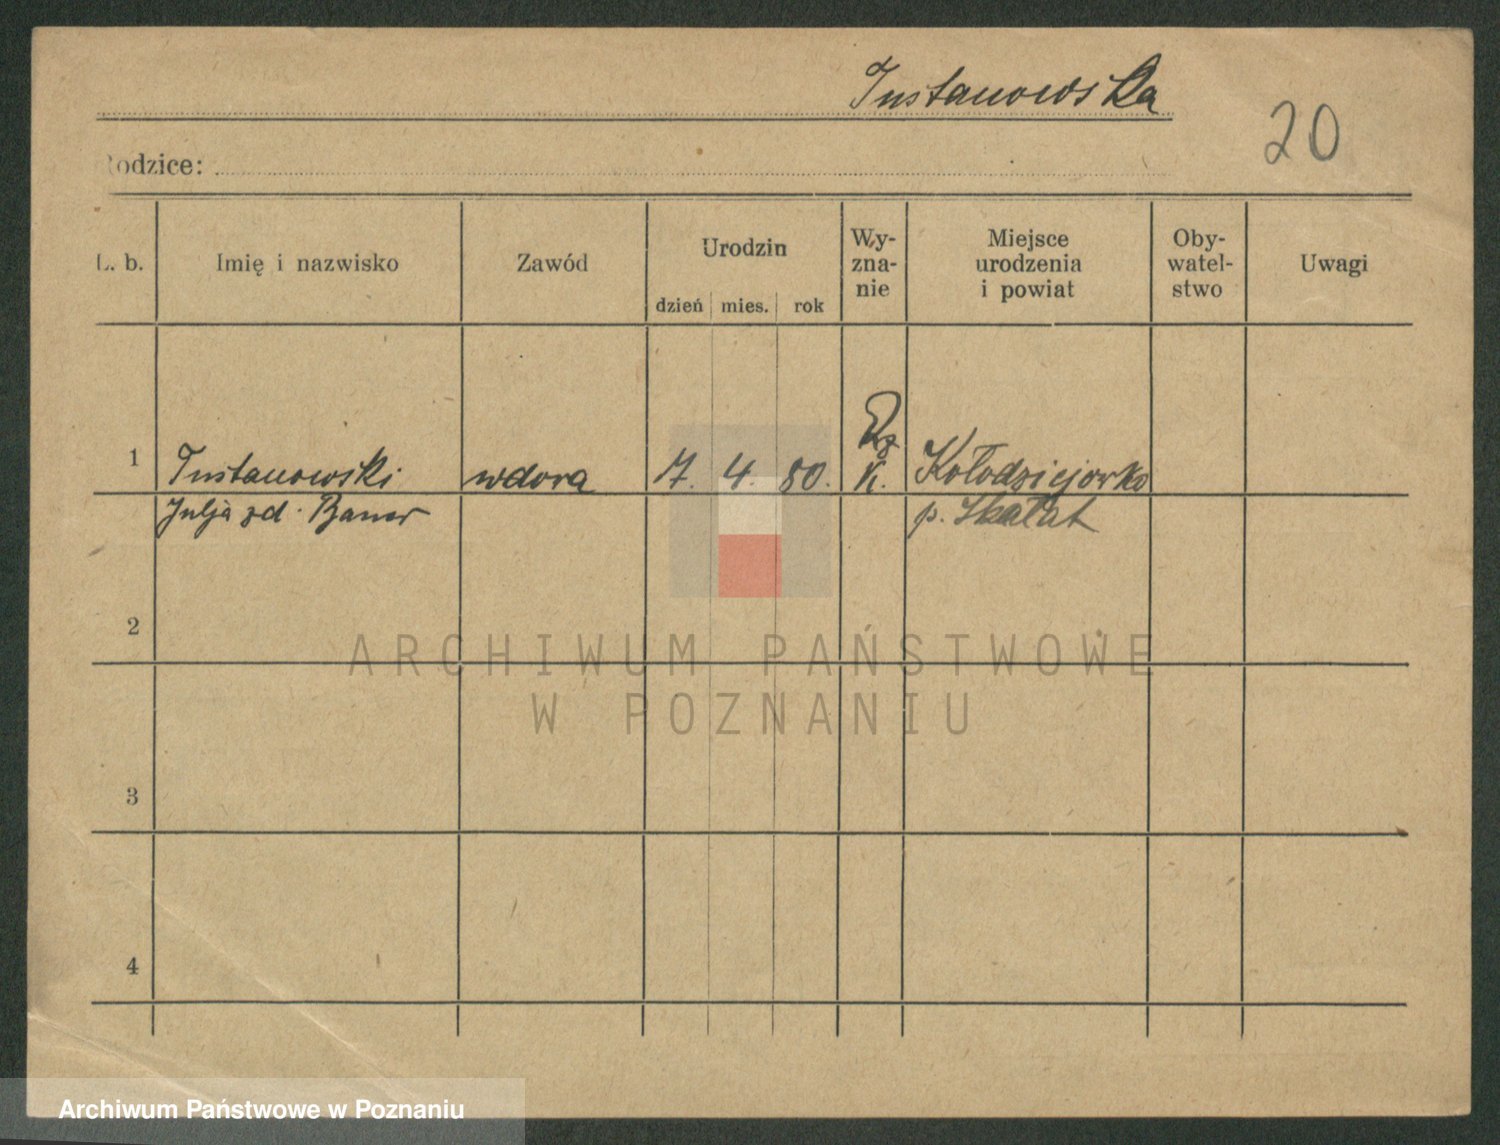 Tustanowska
20
Rodzice:
L. b.
Imię i nazwisko
Zawód
Urodzin
dzień mies. rok
Wy-
zna-
nie
Miejsce
urodzenia
i powiat
Oby-
watel-
stwo
Uwagi
1 Tustanowski wdowa 7. 4. 80. Rz K. Kołodziejowko
Julja zd. Bauer p. Skałat
2
3
4
ARCHIWUM PAŃSTWOWE
W POZNANIU
Archiwum Państwowe w Poznaniu